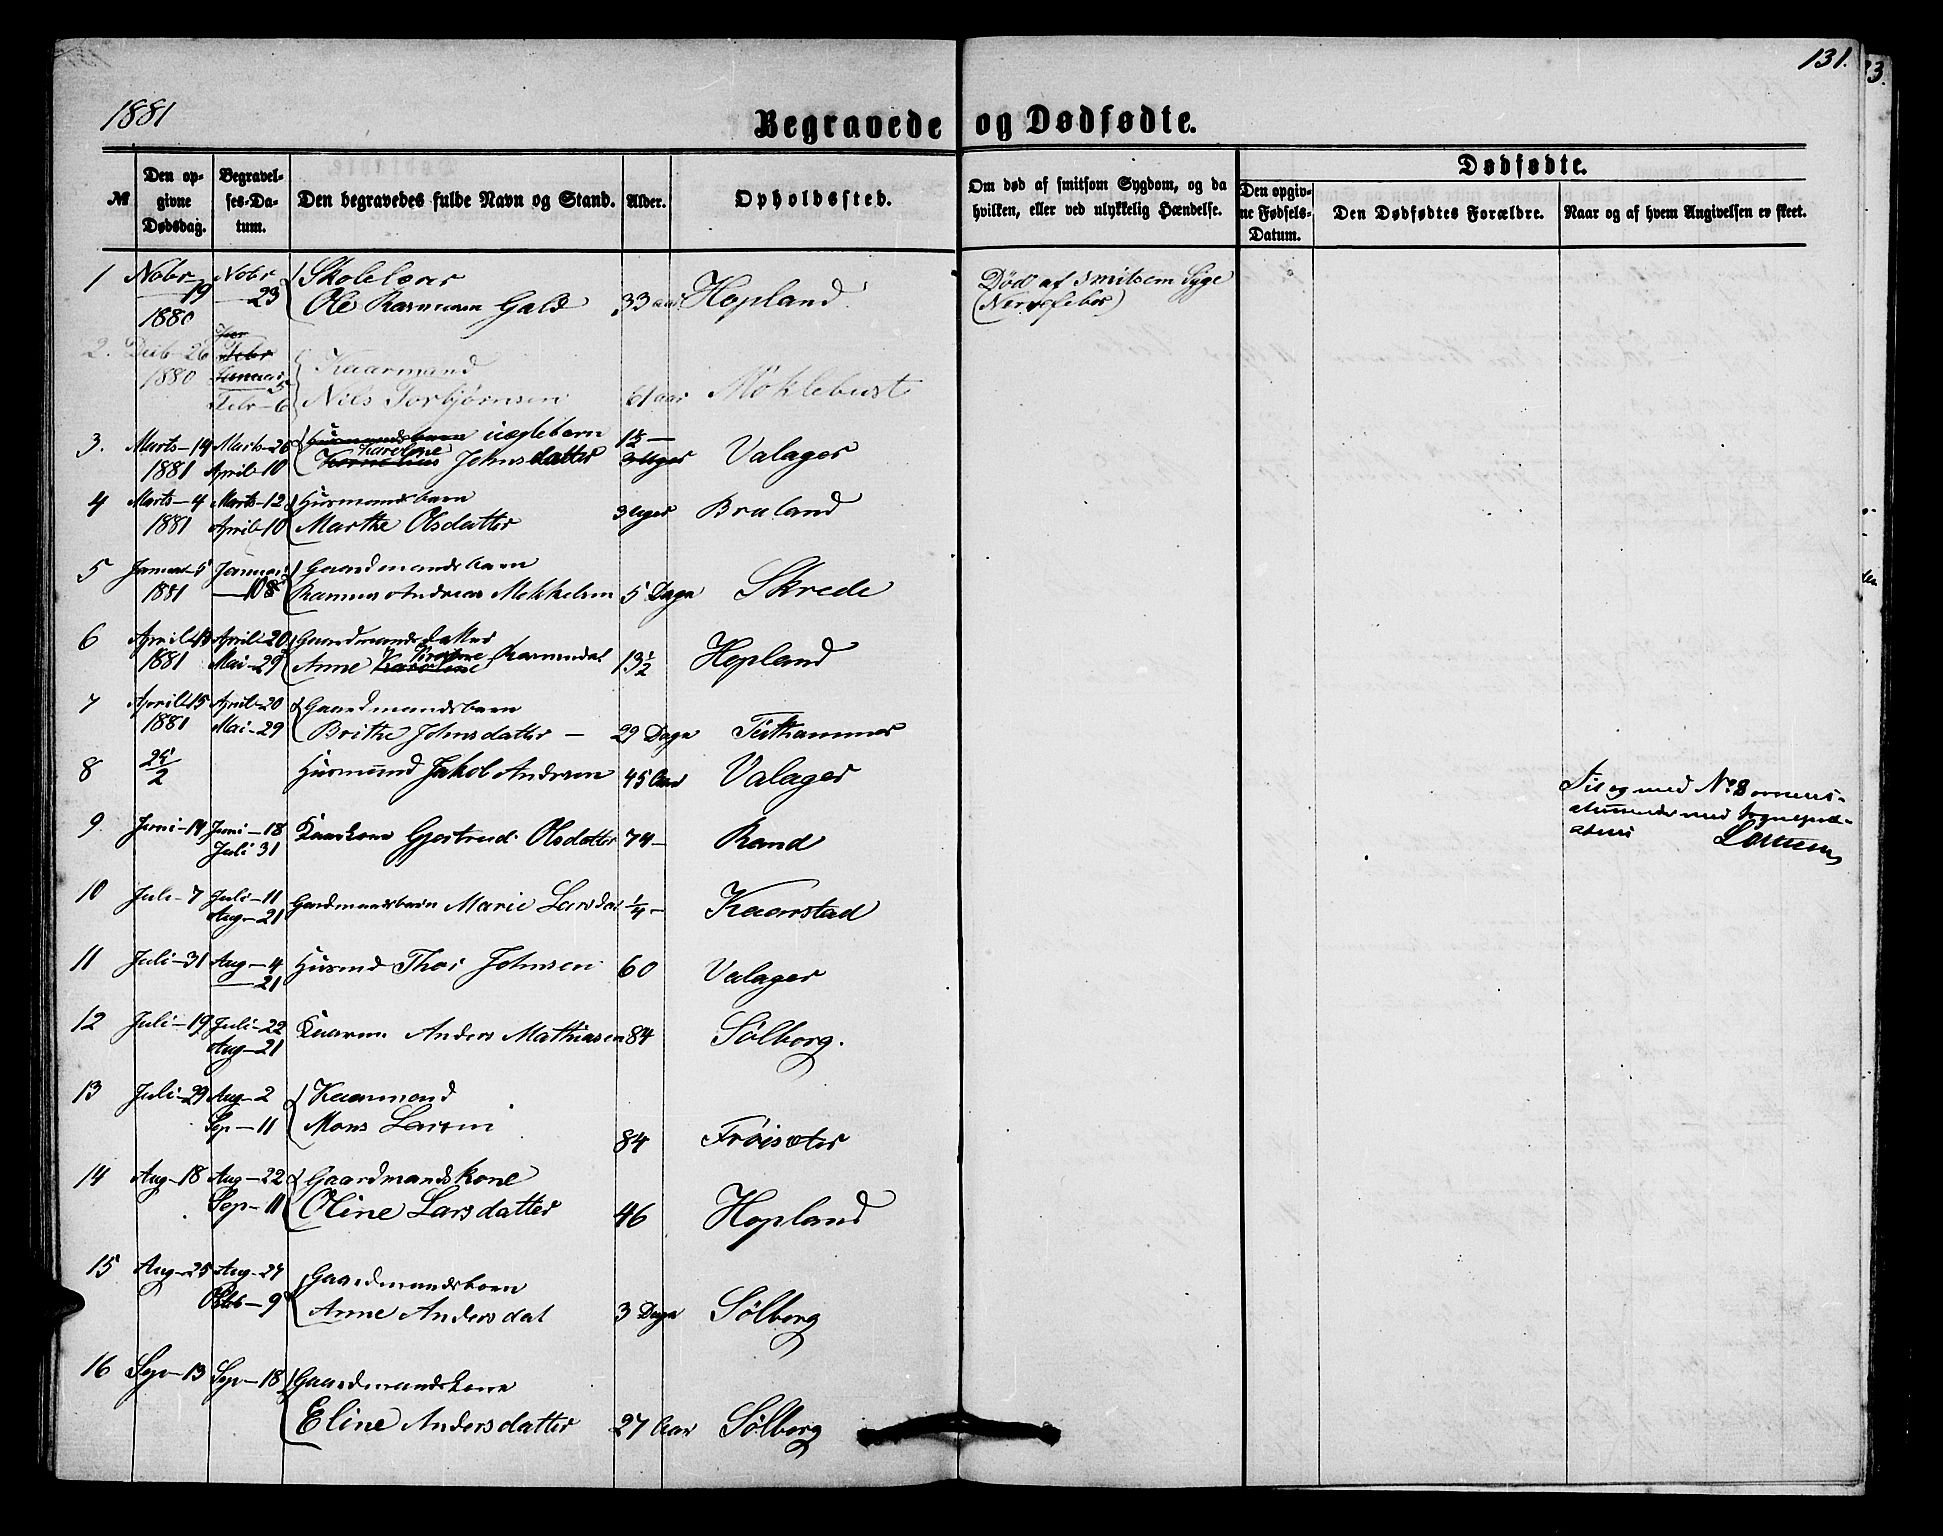 131.
1881
Begravede og Dødfødte.
№
Den op-
givne
Dødsdag.
Begravel-
ses-Da-
tum.
Den begravedes fulde Navn og Stand.
Alder.
Opholdssted.
Om død af smitsom Sygdom, og da
hvilken, eller ved ulykkelig Hændelse.
Dødfødte.
Den opgiv-
ne Fødsels-
Datum.
Den Dødfødtes Forældre.
Naar og af hvem Angivelsen er skeet.
1 Nobr 19 1880 Nobr 23 Skolelærer
Ole Rasmusen Gald 33 aar Hopland
Død af Smitsom Syge
(Nervefeber)
2. Decb-26 1880 Febr Januar 5 Febr-6 Kaarmand
Nils Torbjørnsen 61 aar Møklebust
3. Marts-14 Marts-26 Husmandsbarn uægtebarn 1½-
1881 April-10 Karolene Johnsdatter 3 Uger Valager
4 Marts-4 Marts-12 Husmandsbarn
1881 April-10 Marthe Olsdatter 3 Uger Bruland
5 Januar-5 Januar Gaardmandsbarn
1881 10 8 Rasmus Andreas Mekkelsen 5 Dage Skrede
6 April 13 April-20 Gaardmandsdatter
1881 Mai-29 Anne Karolene Rasmusdat 13½ Hopland
7 April-15 April-20 Gaardmandsbarn
1881 Mai-29 Brithe Johnsdatter - 29 Dage Tuthammer
8 24/2 Husmand Jakob Andersen 45 Aar Valager
Til og med No 8
Lassen
9. Juni-14 Juni-18 Juli 31 Kaarkone Gjertrud Olsdatter 74- Rand
10 Juli-7 Juli-11 Aug-21 Gardmandsbarn Marie Larsdat ¼- Kaarstad
11 Juli-31 Aug-4 21 Husmd Thor Johnsen 60 Valager
12 Juli-19 Juli-22 Aug-21 Kaarm. Anders Mathiasen 84 Sølborg.
13 Juli-29 Aug-2 Kaarmand
Sep-11 Mons Larsen 84 Frøisæter
14 Aug-18 Aug-22 Gaardmandskone
Sep-11 Oline Larsdatter 46 Hopland
15 Aug-25 Aug-27 Gaardmandsbarn
Oktb-9 Anne Andersdat 3 Dage Sølborg
16 Sep-13 Sep-18 Gaardmandskone
Eline Andersdatter 27 Aar Sølborg